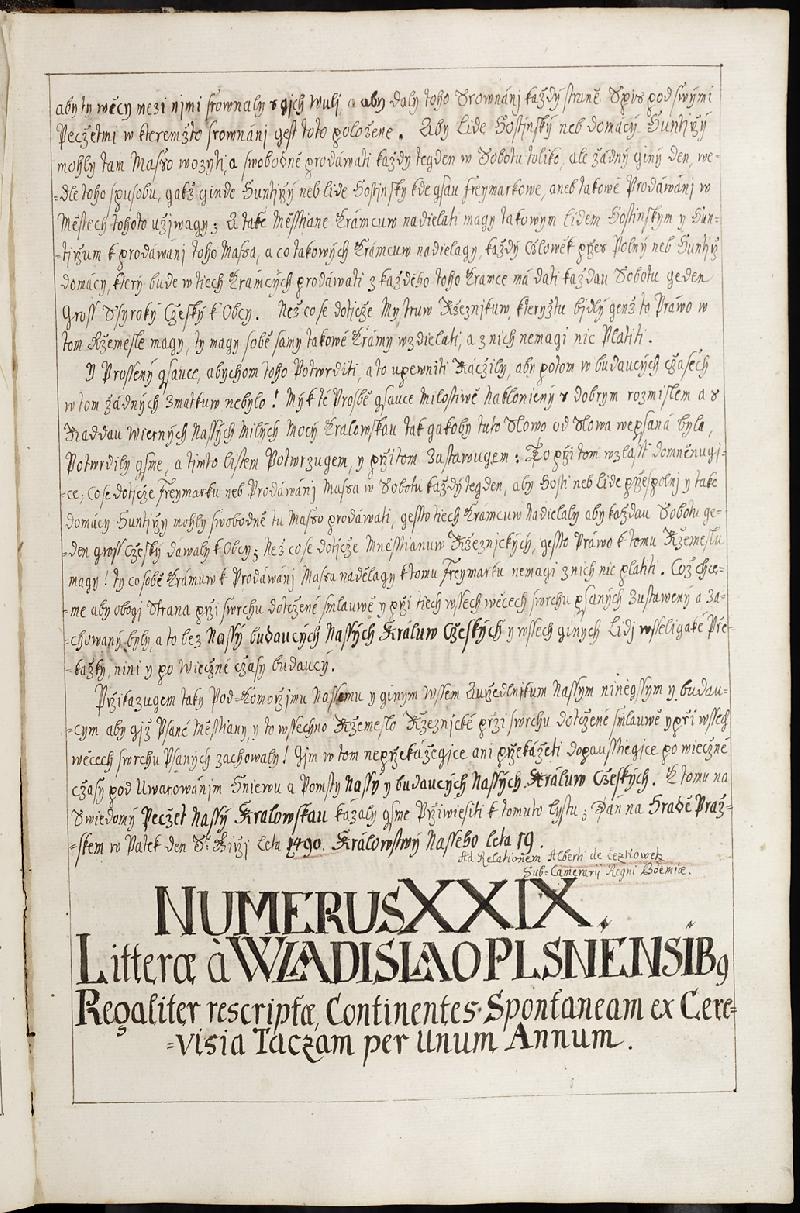 aby ty wěcy mezi njmi srownaly s gich wulj a aby daly toho Srownánj každý straně Spis pod swými
Pečzetmi w kteremžto srownánj gest toto položene. Aby lide Hostinský neb domácý Huntýřý
mohly tam Masso wozyti, a swobodně prodáwati každý tegden w Sobotu toliko, ale žádný giný den, we-
=dle toho spusobu, gakž ginde Huntýřý neb lide Hostinský kde gsau Freymarkowe, aneb takowé Prodáwánj w
Městech tohoto užjwagý; A také Měsstiane Krámcuw nadielati magy takowym lidem Hostinskym y Hun-
=týřum k prodáwanj toho Massa, a co takowých Krámcuw nadielagy, každý Człowěk přes Polný neb Huntýř
domácy, který bude w tiech Krámcých prodáwati z každeho toho Kramce má dati každau Sobotu geden
Gross Ssyroký Czeský k Obcy. Než cose dotiče Mystruw Ržeznjkuw, kteryžtu bjdlý genž to Práwo w
tom Ržemesle magy, ty magy sobě samy takowé Krámy wzdielati, a z nich nemagi nic Platiti.
Y Prossený gsauce, abychom toho Potwrditi, a to upewniti Ráčzily, aby potom w budaucých čzasech
w tom žádných zmatkuw nebylo! My k té Prosbě gsauce Milostiwě nakloniený s dobrým rozmislem a s
Raddau Wierných Nassých Milých Mocý Kralowskau tak gakoby tuto Slowo od Slowa wepsaná byla,
Potwrdily gsme, a timto listem Potwrzugem, y při tom Zustawugem: To při tom wzlásst domněnugj-
=ce, cose dotiče Freymarku neb Prodáwánj Massa w Sobotu každý tegden, aby Hosti neb lide přespolnj y také
domácy Huntýřy mohly swobodně tu Masso prodáwati, gessto tiech Kramcuw nadielaly aby každau Sobotu ge-
=den gross Czeský dáwaly k Obcy; Než cose dotiče Mněsstianuw Ržeznjckých, gessto Práwo k tomu Ržemeslu
magy! ty co sobě Krámuw k Prodáwánj Massa nadělagy k tomu Freymarku nemagi z nich nic platiti. Což chce-
=me aby obogj Strana při swrchu dotčené smlauwě y při tiech wssech wěcech swrchu psaných Zustaweny a Za-
=chowaný były, a to bez Nassý budaucých Nassých Králuw Czeských y wssech giných Lidj wsseligaké Pře-
=kažky, nini y po wiečné čzasy budaucý.
Přikazugem taky Pod-Komořjmu Nassemu y giným wssem Auředlnikum Nassym niněgssym y budau-
=cym aby gjž Psané Měsstiany, y to wssechno Ržemeslo Ržeznjcké při swrchu dotčené smlauwě y při wssech
wěcech swrchu Psaných zachowaly! Gjm w tom nepřekážegjce ani překážeti dopausstiegjce po wiečné
čzasy pod Uwarowánjm Hniewu a Pomsty Nassy y budaucých Nassých Králuw Czeských. K tomu na
Swiedomý Peczet Nassý Kralowskau kázaly gsme Přiwiesiti k tomuto lystu; Dán na Hradě Praž-
=skem w Patek den S. Giřj leta 1490. Králowstwý Nasseho leta 19.
Ad Relationem Alberti de Leskowetz
Sub-Camerarij Regni Boëmiæ.
NUMERUS XXIX.
Litteræ à WLADISLAO PLSNENSIB9
Regaliter rescriptæ, Continentes Spontaneam ex Cere-
=visia Taczam per Unum Annum.